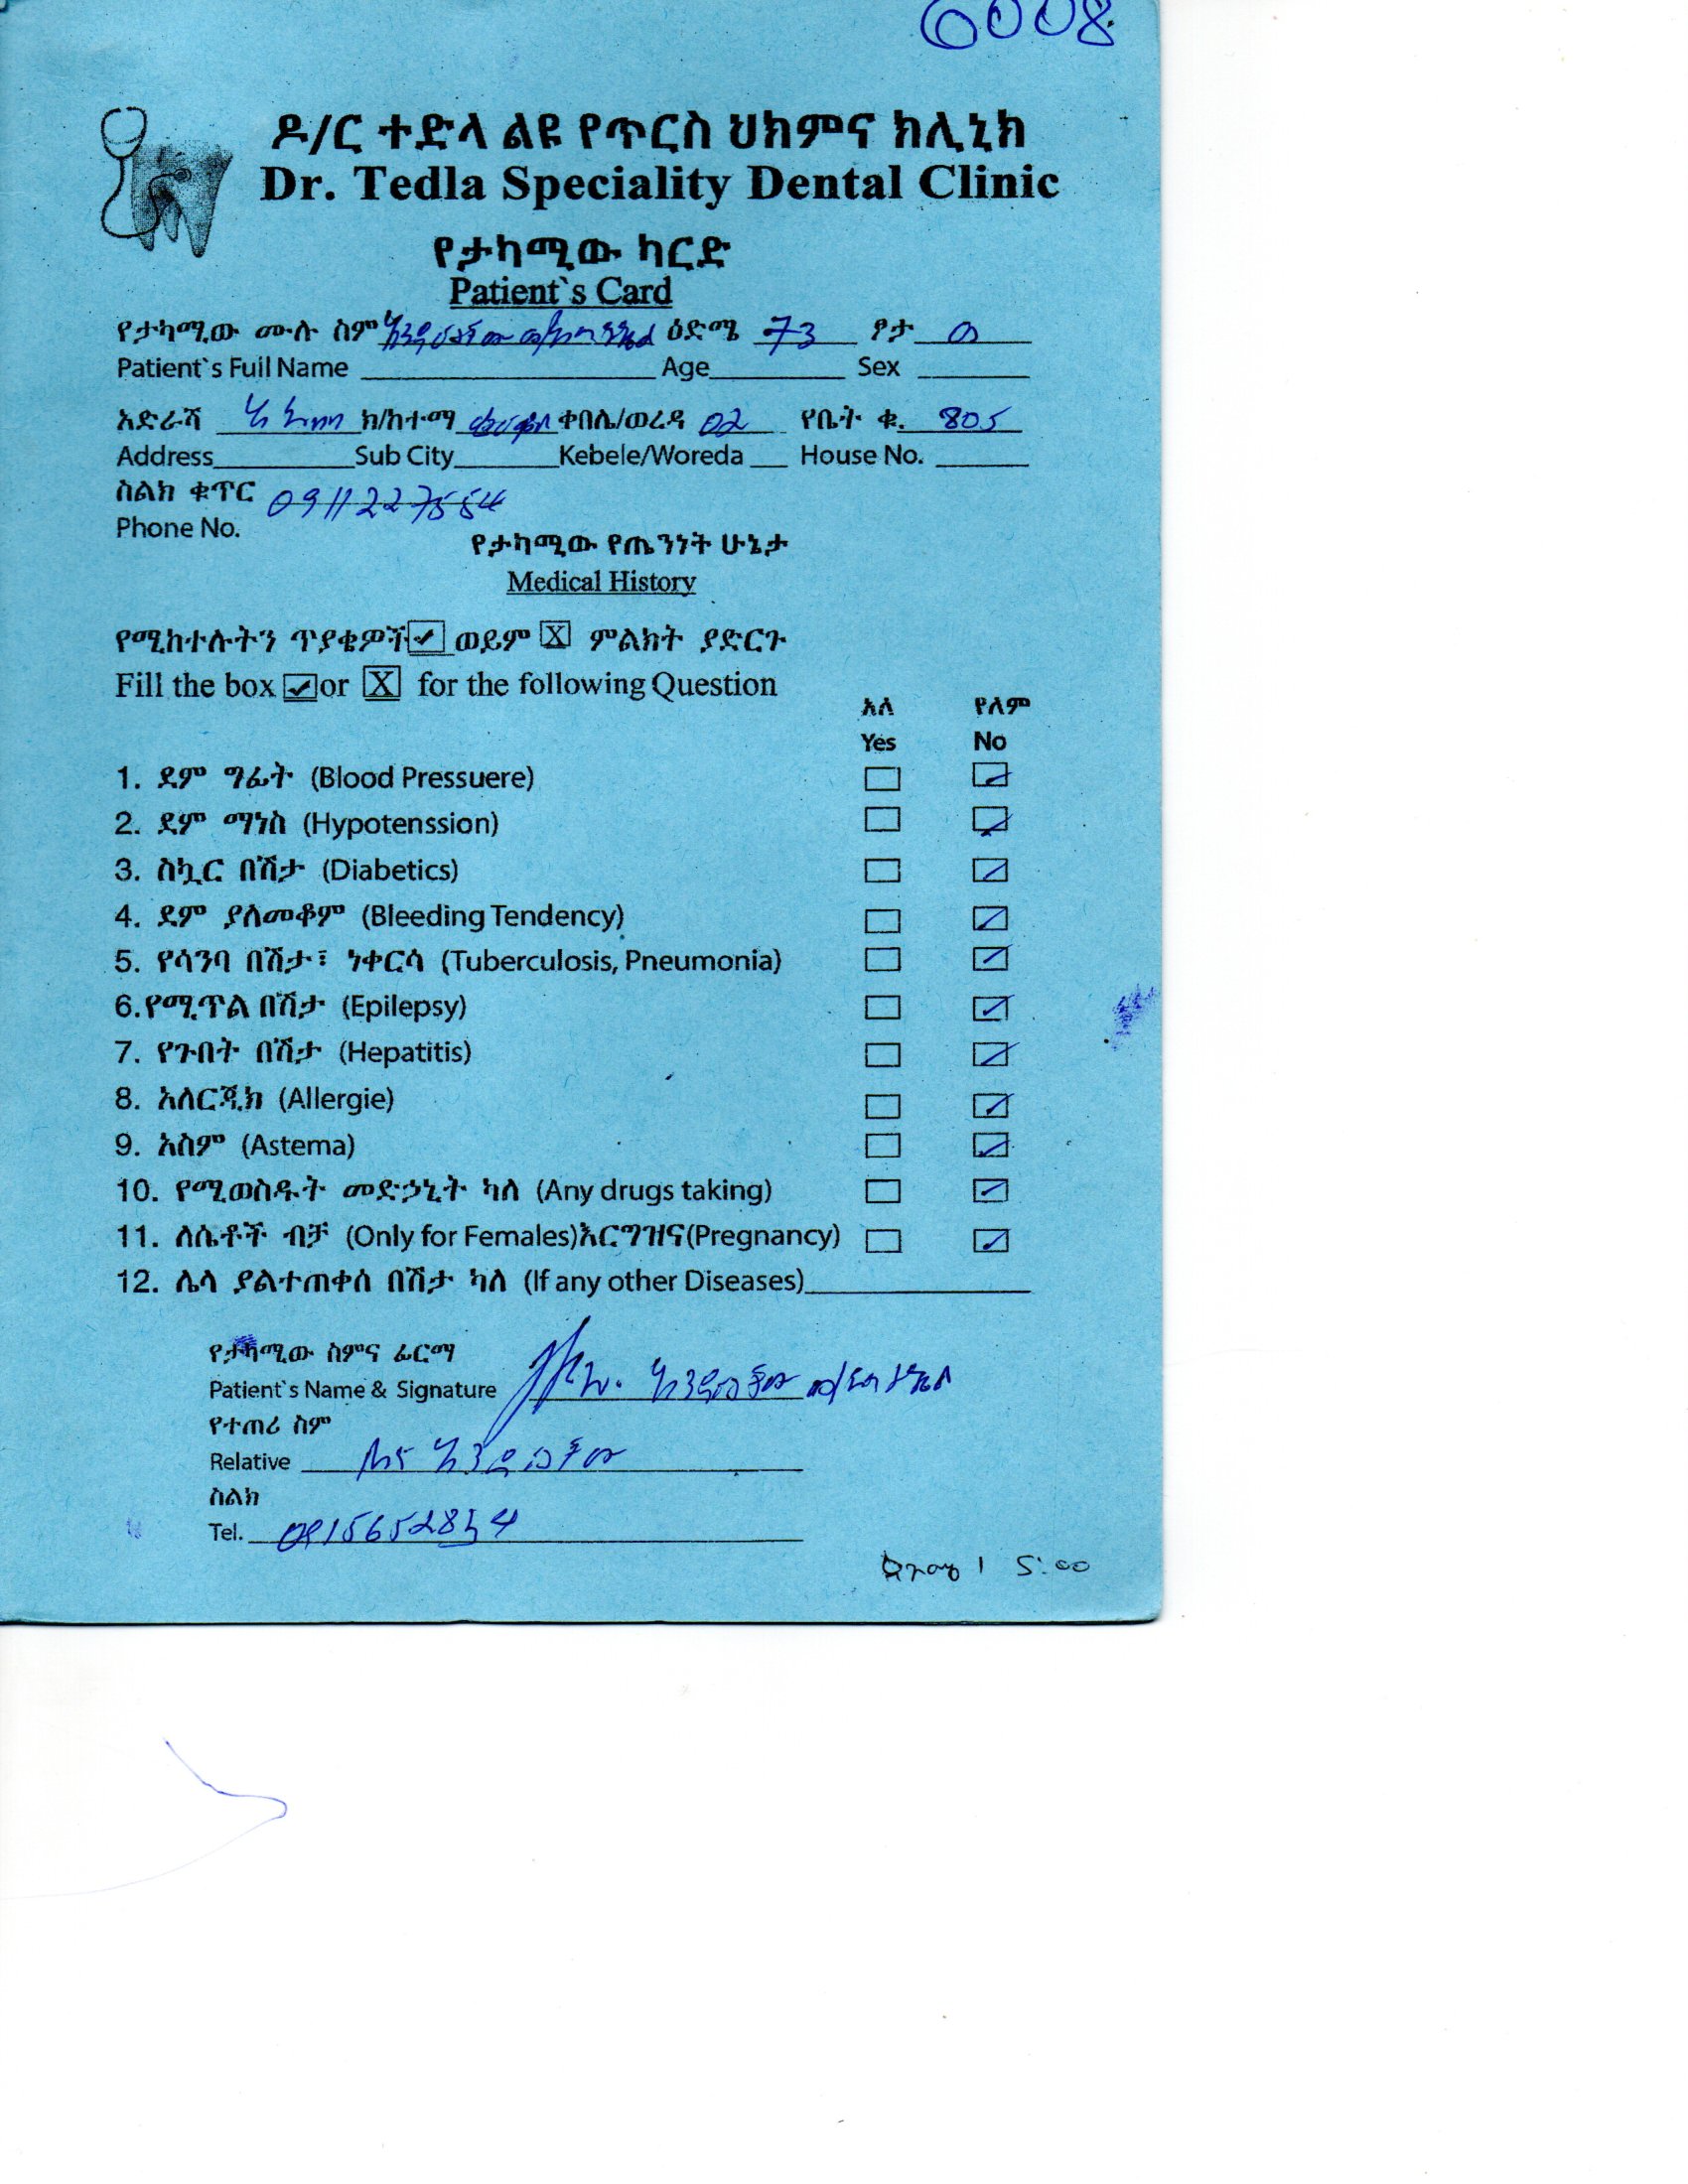 6008
ዶ/ር ተድላ ልዩ የጥርስ ህክምና ክሊኒክ
Dr. Tedla Speciality Dental Clinic
የታካሚው ካርድ
Patient`s Card
የታካሚው ሙሉ ስም ዕድሜ 73 ፆታ
Patient`s Full Name Age Sex
አድራሻ ክ/ከተማ ቀበሌ/ወረዳ 02 የቤት ቁ. 805
Address Sub City Kebele/Woreda House No.
ስልክ ቁጥር 0911227554
Phone No.
የታካሚው የጤንነት ሁኔታ
Medical History
የሚከተሉትን ጥያቄዎች ወይም X ምልክት ያድርጉ
Fill the box or X for the following Question
አለ የለም
Yes No
1. ደም ግፊት (Blood Pressuere)
2. ደም ማነስ (Hypotenssion)
3. ስኳር በሽታ (Diabetics)
4. ደም ያለመቆም (Bleeding Tendency)
5. የሳንባ በሽታ፣ ነቀርሳ (Tuberculosis, Pneumonia)
6.የሚጥል በሽታ (Epilepsy)
7. የጉበት በሽታ (Hepatitis)
8. አለርጂክ (Allergie)
9. አስም (Astema)
10. የሚወስዱት መድኃኒት ካለ (Any drugs taking)
11. ለሴቶች ብቻ (Only for Females)እርግዝና(Pregnancy)
12. ሌላ ያልተጠቀሰ በሽታ ካለ (If any other Diseases)
የታካሚው ስምና ፊርማ
Patient`s Name & Signature
የተጠሪ ስም
Relative
ስልክ
Tel. 0915652854
1 5:00